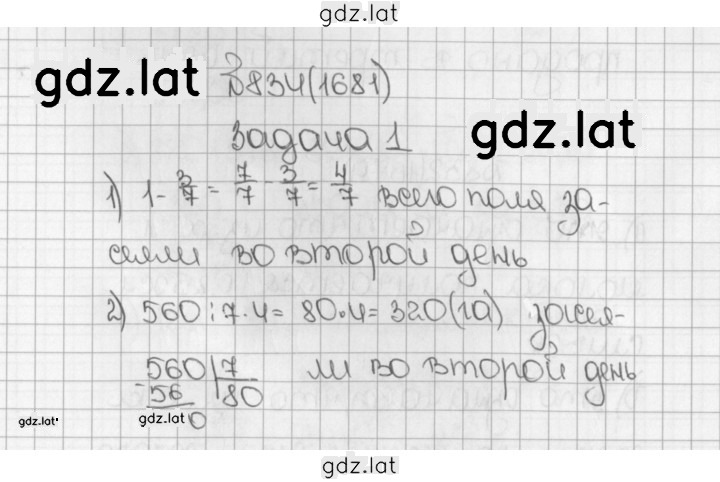 gdz.lat
gdz.lat
№834(1681)
gdz.lat
Задача 1
1) 1 - 3/7 = 7/7 - 3/7 = 4/7 всего поля за-
сеяли во второй день
2) 560 : 7 · 4 = 80 · 4 = 320 (га) засея-
ли во второй день
560 | 7
- 56 | 80
0
gdz.lat
gdz.lat
gdz.lat